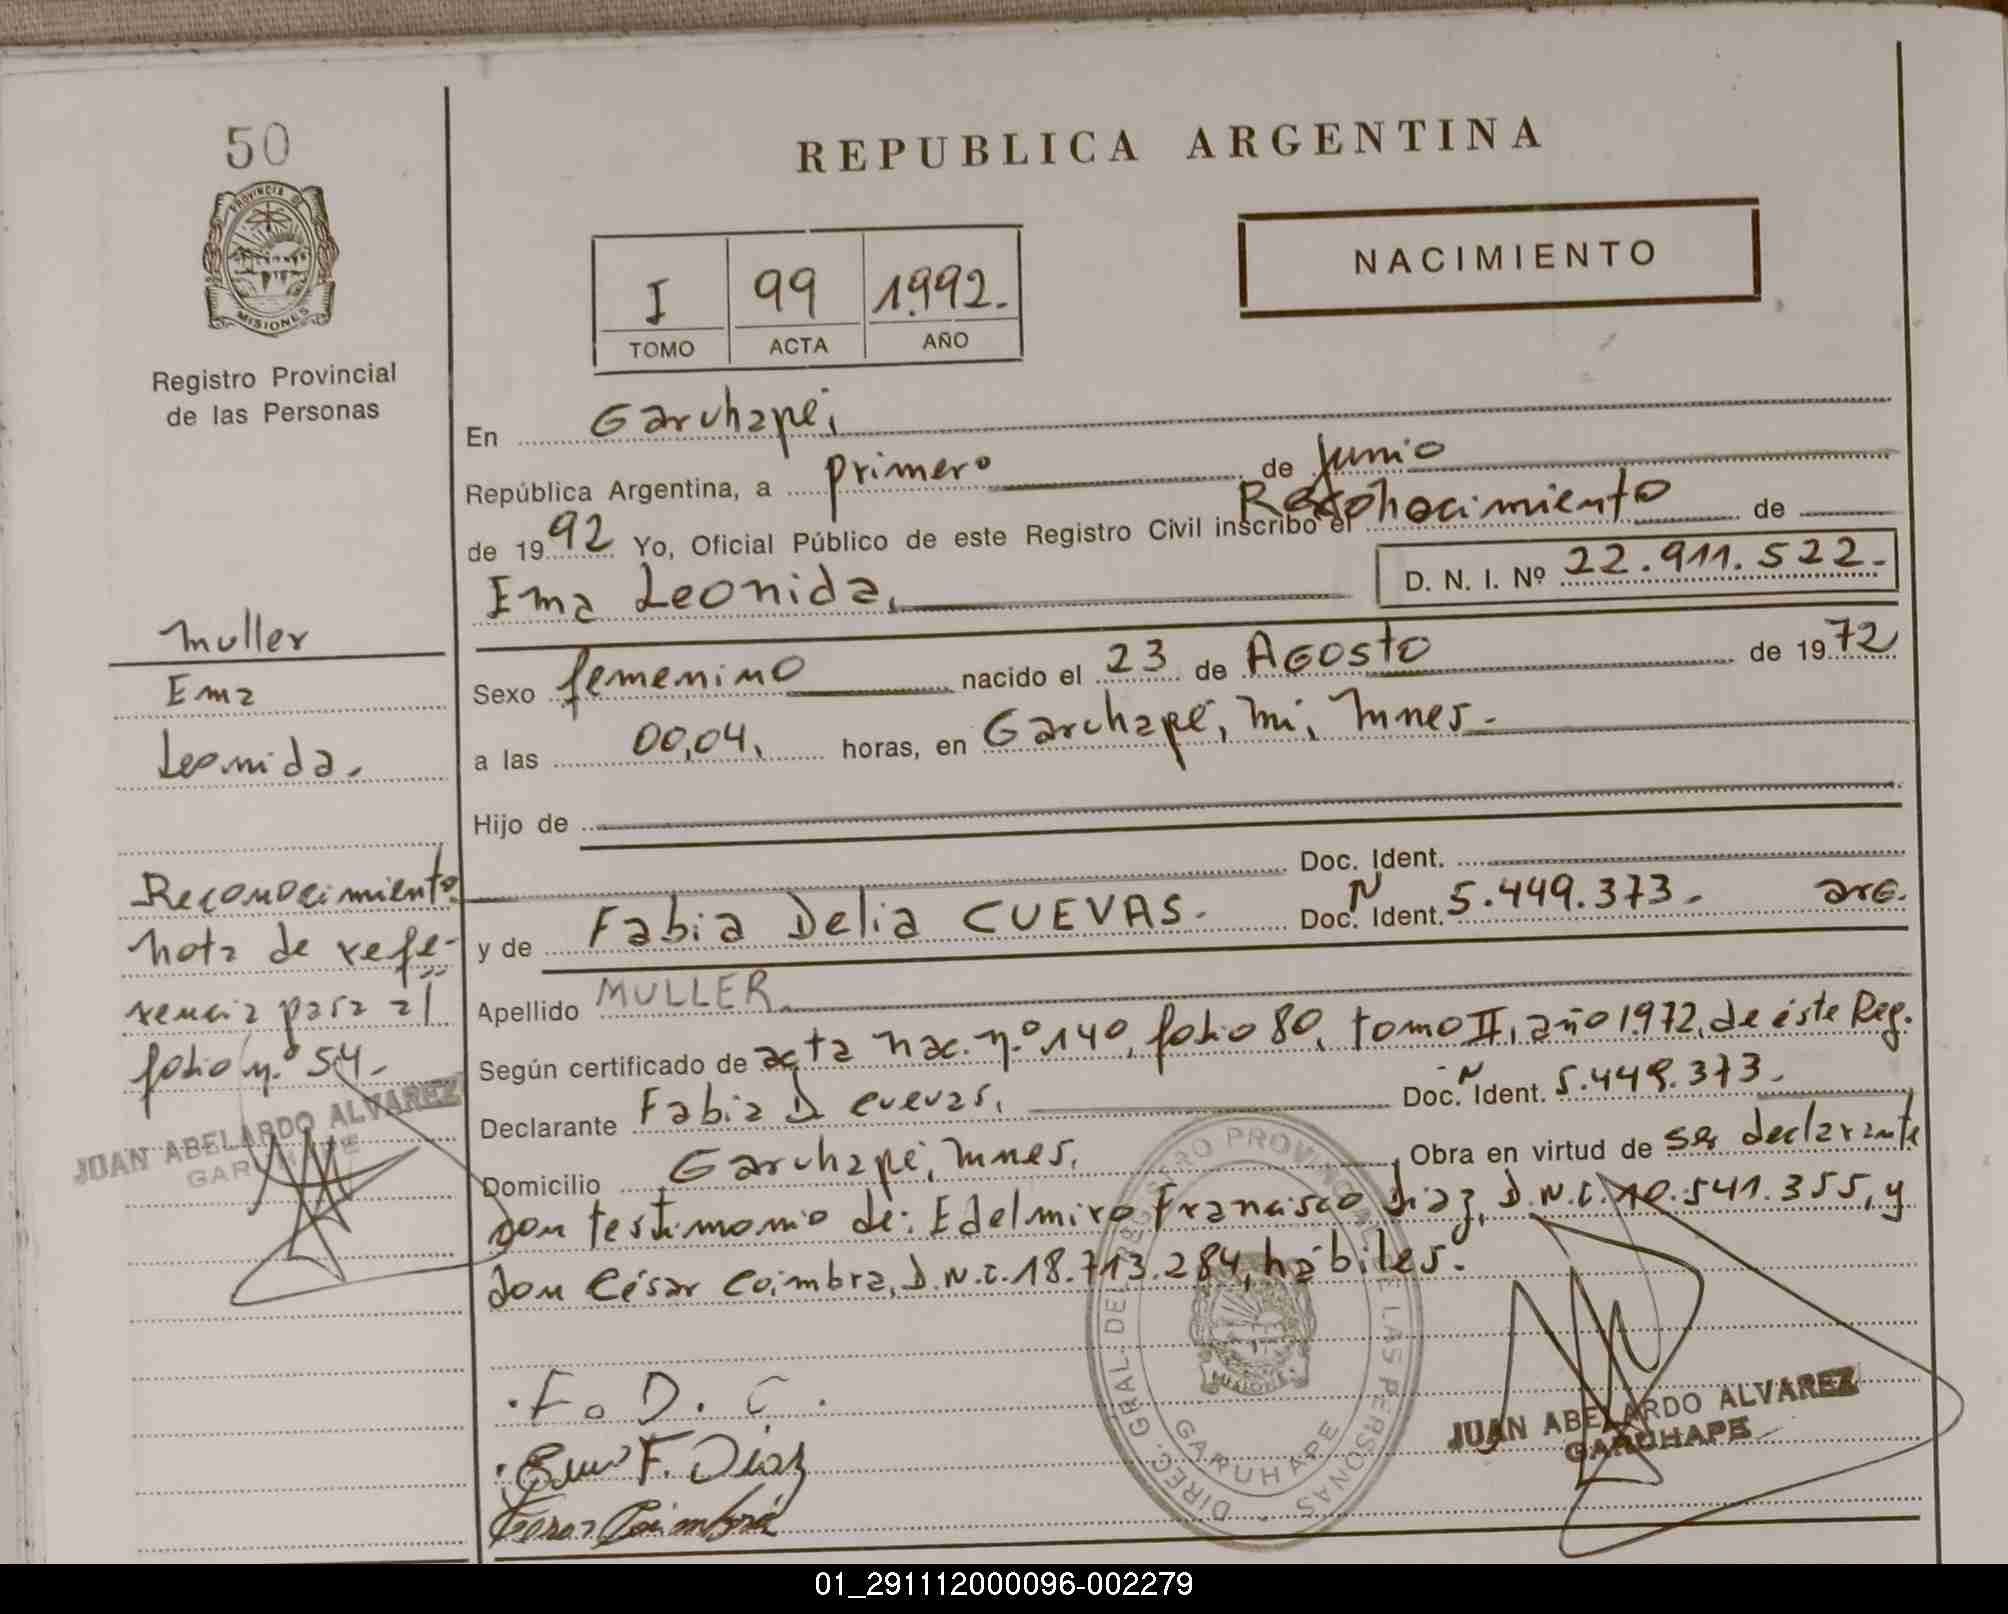 50
PROVINCIA DE
MISIONES
Registro Provincial
de las Personas
REPUBLICA ARGENTINA
NACIMIENTO
I 99 1992.-
TOMO ACTA AÑO
En Garuhapé,
República Argentina, a primero de Junio
de 1992 Yo, Oficial Público de este Registro Civil inscribo el Reconocimiento de
Ema Leonida, D. N. I. Nº 22.911.522.-
Sexo femenino nacido el 23 de Agosto de 1972
a las 00,04, horas, en Garuhapé, Mi, Mnes.-
Hijo de
Doc. Ident.
y de Fabia Delia CUEVAS. Doc. N Ident. 5.449.373. arg.
Apellido MULLER
Según certificado de acta nac. n.º 140, folio 80, tomo II, año 1972, de éste Reg.
Declarante Fabia D cuevas, Doc. N Ident. 5.449.373.-
Domicilio Garuhapé, Mnes. Obra en virtud de ser declarante
con testimonio de: Edelmiro Francisco Diaz, D.N.I. 10.541.355, y
don César Coimbra, D.N.I. 18.713.284, hábiles.-
Muller
Ema
Leonida.
Reconocimiento
nota de refe-
rencia para el
folio n.º 54.-
JUAN ABELARDO ALVAREZ
GARUHAPE
.F. D. C.
F. Diaz
Cesar Coimbra
DIREC. GRAL. DEL REGISTRO PROVINCIAL DE LAS PERSONAS
MISIONES
GARUHAPE
JUAN ABELARDO ALVAREZ
GARUHAPE
01_291112000096-002279